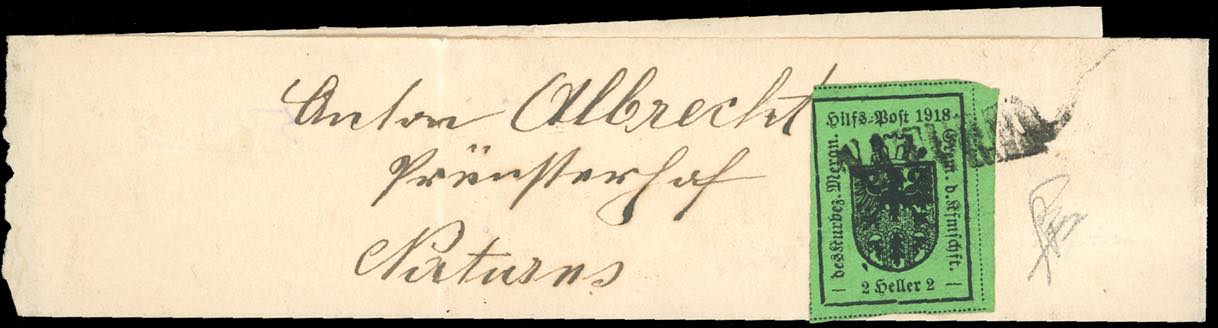 Anton Albrecht
Prünsterhof
Naturns
Hilfs-Post 1918.
des Kurbez. Meran.
2 Heller 2